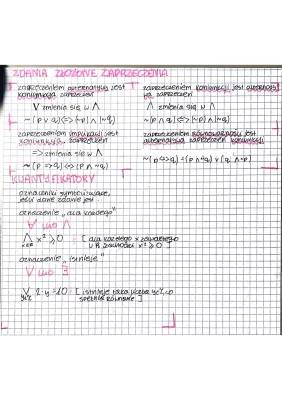 ZDANIA ZŁOŻONE ZAPRZECZENIA
zaprzeczeniem alternatywy jest
koniunkcja zaprzeczeń
V zmienia się w Λ
~(p v q)<=>(~p) Λ (~q)
zaprzeczeniem koniunkcji jest alternatywa
zaprzeczeń
Λ zmienia się w V
~(p Λ q)<=>(~p) v (~q)
zaprzeczeniem implikacji jest
koniunkcja zaprzeczeń
=> zmienia się w Λ
~(p =>q) <=> (p Λ ~q)
zaprzeczeniem równoważności jest
alternatywa zaprzeczeń koniunkcji
~(p <=> q) = (p Λ ~q) v (q Λ ~p)
KWANTYFIKATORY
oznaczniki symbolizujące,
jeśli dane zdanie jest...
oznaczenie "dla każdego"
∀ lub Λ
Λ x² ≥ 0 - [dla każdego x
x² ≥ 0]
oznaczenie "istnieje"
V lub ∃
V 2·y=10 - [istnieje taka liczba
spełnia równanie]